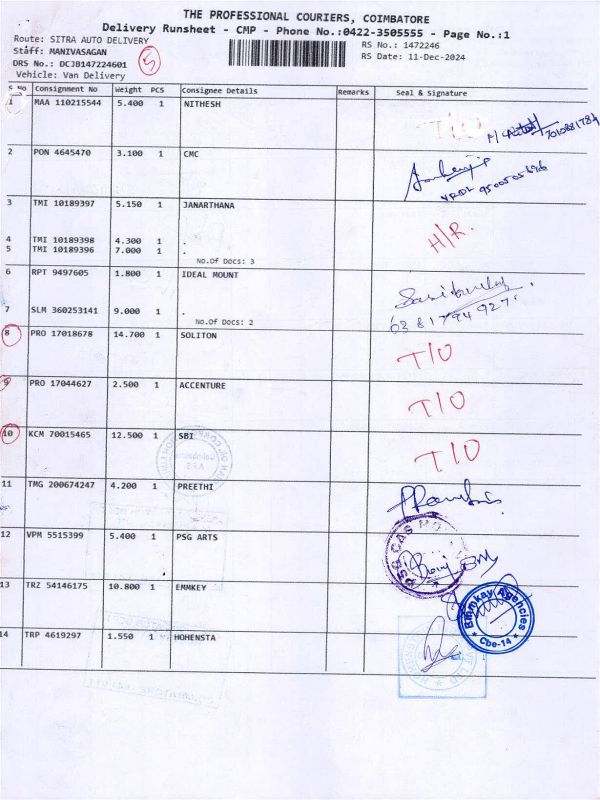 THE PROFESSIONAL COURIERS, COIMBATORE
Delivery Runsheet - CMP - Phone No.:0422-3505555 - Page No.:1
Route: SITRA AUTO DELIVERY
RS No.: 1472246
Staff: MANIVASAGAN
RS Date: 11-Dec-2024
DRS No.: DCJB147224601
5
Vehicle: Van Delivery
S No Consignment No Weight PCS Consignee Details Remarks Seal & Signature
1 MAA 110215544 5.400 1 NITHESH
T/O
2 PON 4645470 3.100 1 CMC
3 TMI 10189397 5.150 1 JANARTHANA
H/R.
4 TMI 10189398 4.300 1 .
5 TMI 10189396 7.000 1 .
No.Of Docs: 3
6 RPT 9497605 1.800 1 IDEAL MOUNT
7 SLM 360253141 9.000 1 .
No.Of Docs: 2
8 PRO 17018678 14.700 1 SOLITON
T/O
9 PRO 17044627 2.500 1 ACCENTURE
T/O
10 KCM 70015465 12.500 1 SBI
T/O
11 TMG 200674247 4.200 1 PREETHI
12 VPM 5515399 5.400 1 PSG ARTS
PSG CAS
13 TRZ 54146175 10.800 1 EMMKEY
Emmkay Agencies
* Cbe-14 *
14 TRP 4619297 1.550 1 HOHENSTA